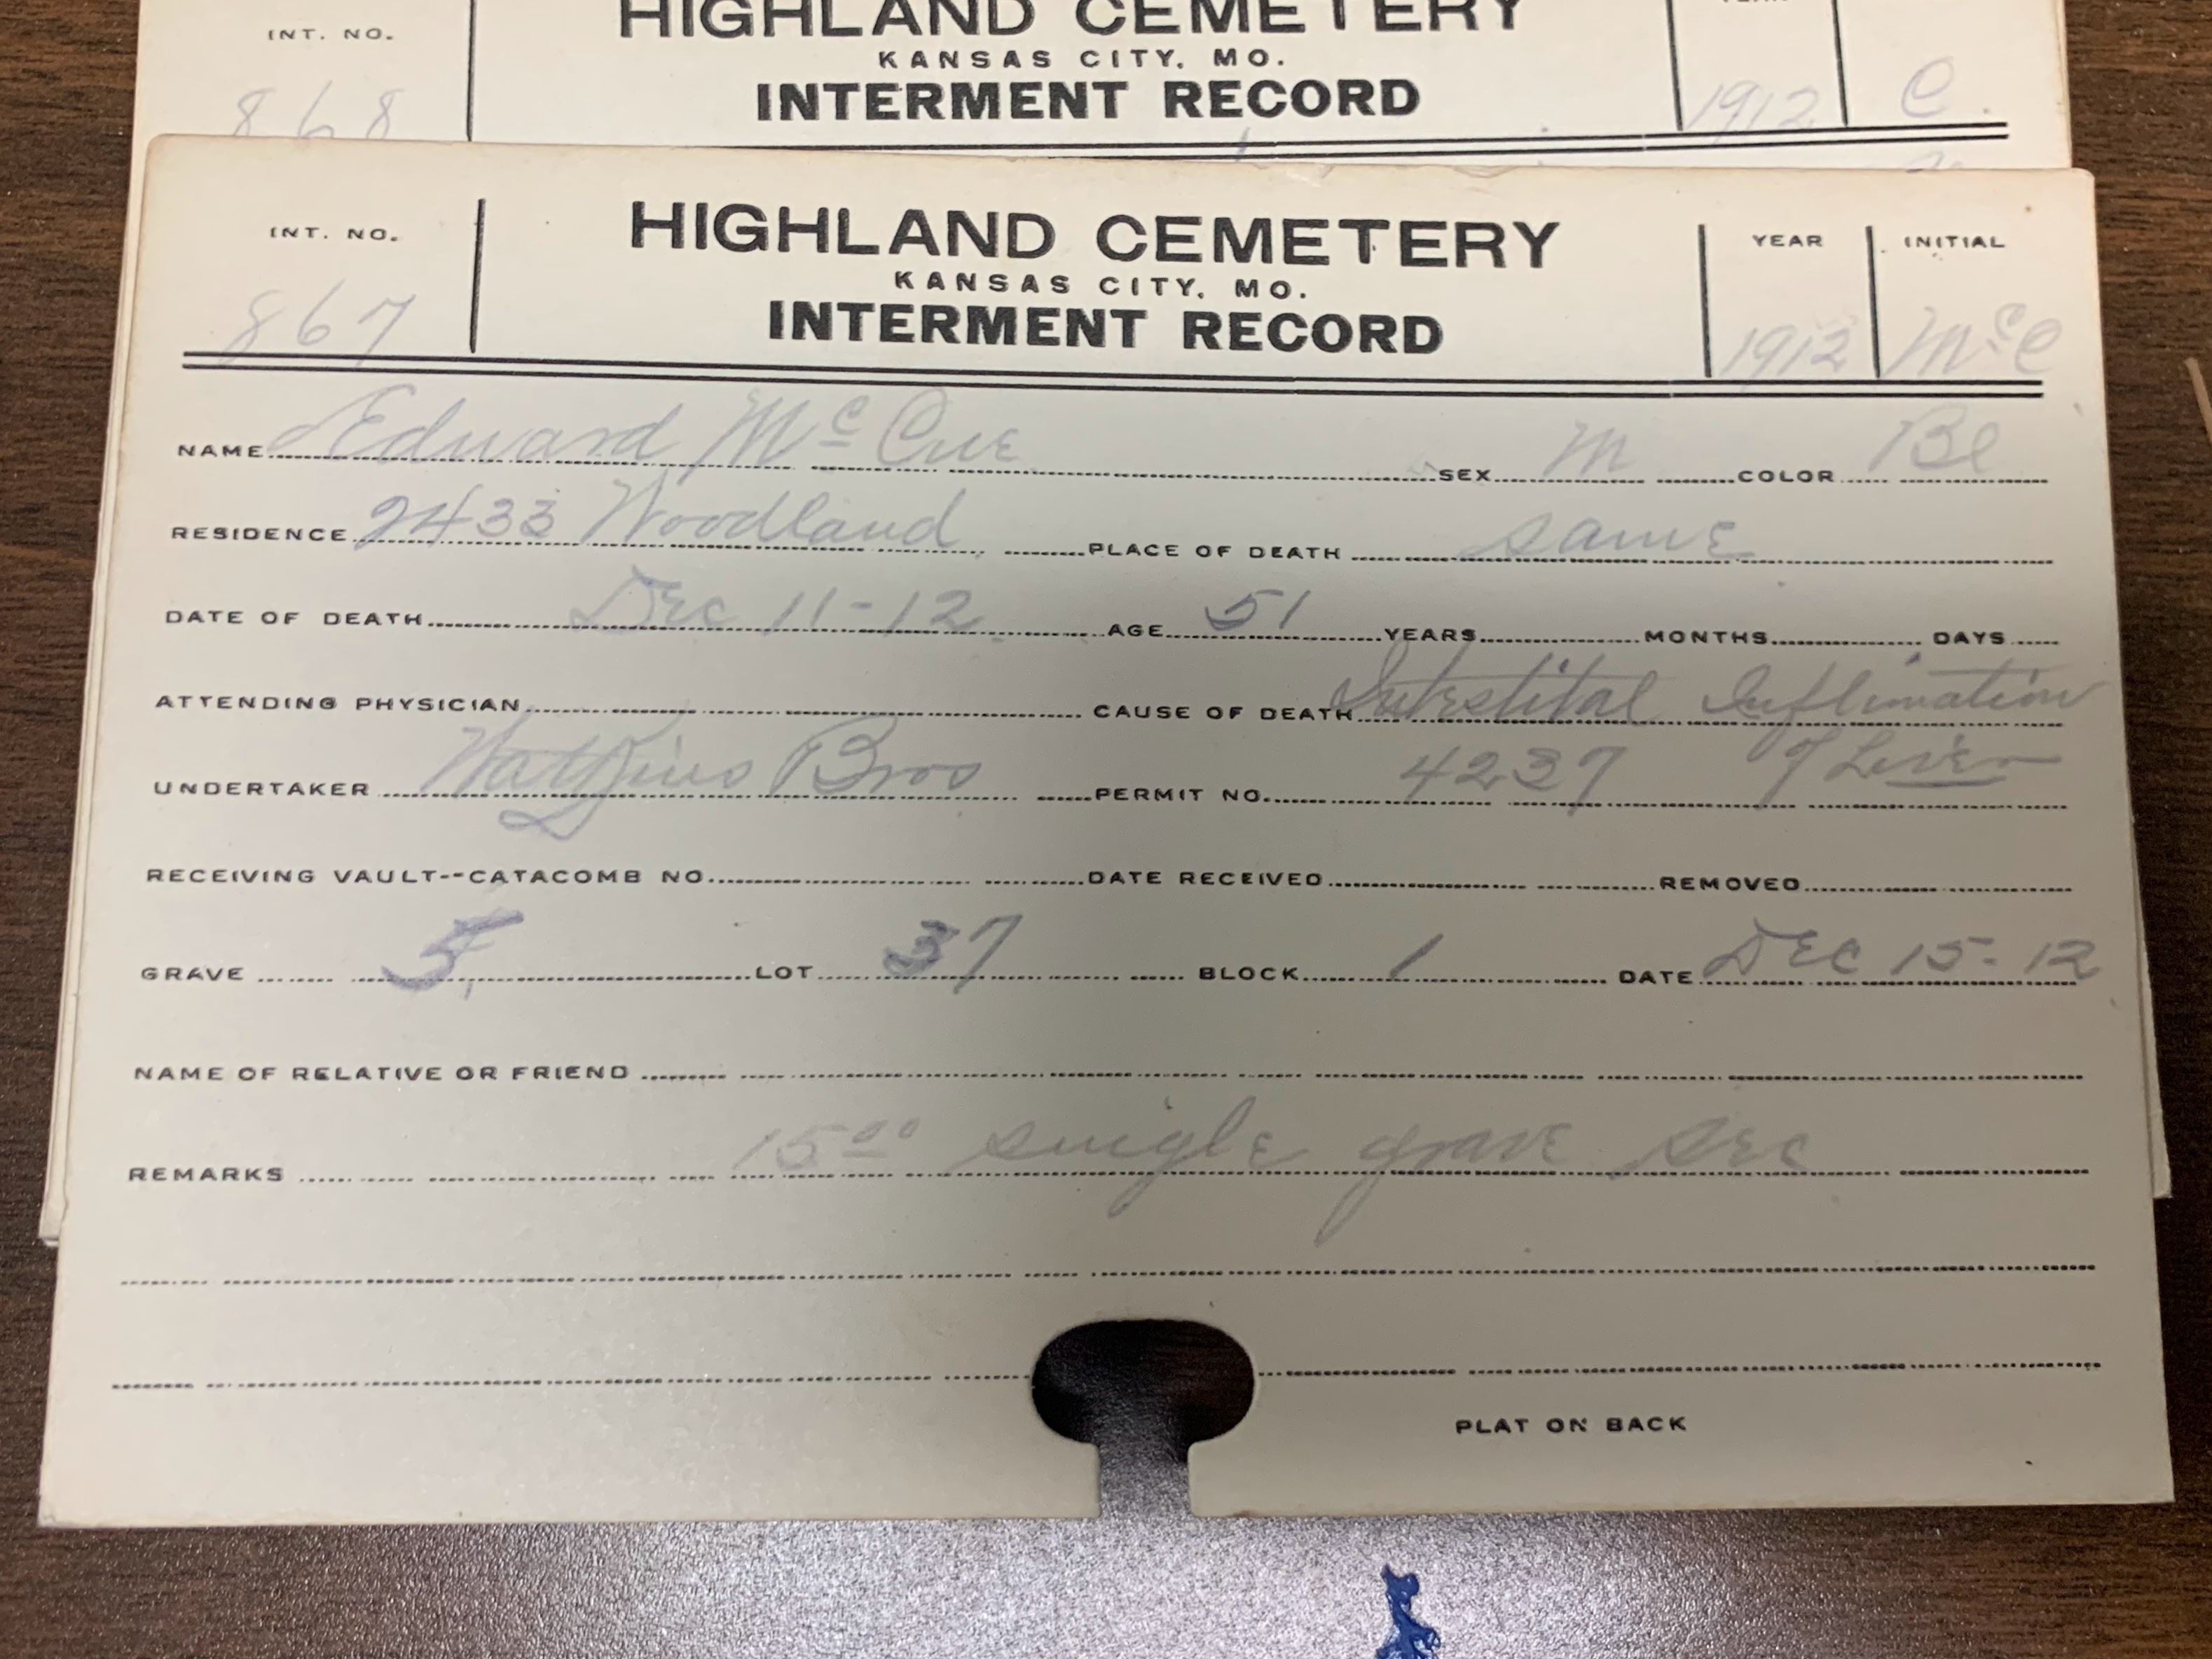 INT. NO. HIGHLAND CEMETERY
KANSAS CITY, MO.
868 INTERMENT RECORD 1912 C.
INT. NO. HIGHLAND CEMETERY YEAR INITIAL
KANSAS CITY, MO.
867 INTERMENT RECORD 1912 McC
NAME Edward McCue SEX M COLOR Bl
RESIDENCE 2433 Woodland PLACE OF DEATH same
DATE OF DEATH Dec 11-12 AGE 51 YEARS MONTHS DAYS
ATTENDING PHYSICIAN CAUSE OF DEATH Intestital Inflimation
UNDERTAKER Watkins Bros PERMIT NO. 4237 of Liver
RECEIVING VAULT--CATACOMB NO. DATE RECEIVED REMOVED
GRAVE 5, LOT 37 BLOCK 1 DATE Dec 15-12
NAME OF RELATIVE OR FRIEND
REMARKS 15 00 single grave sec
PLAT ON BACK